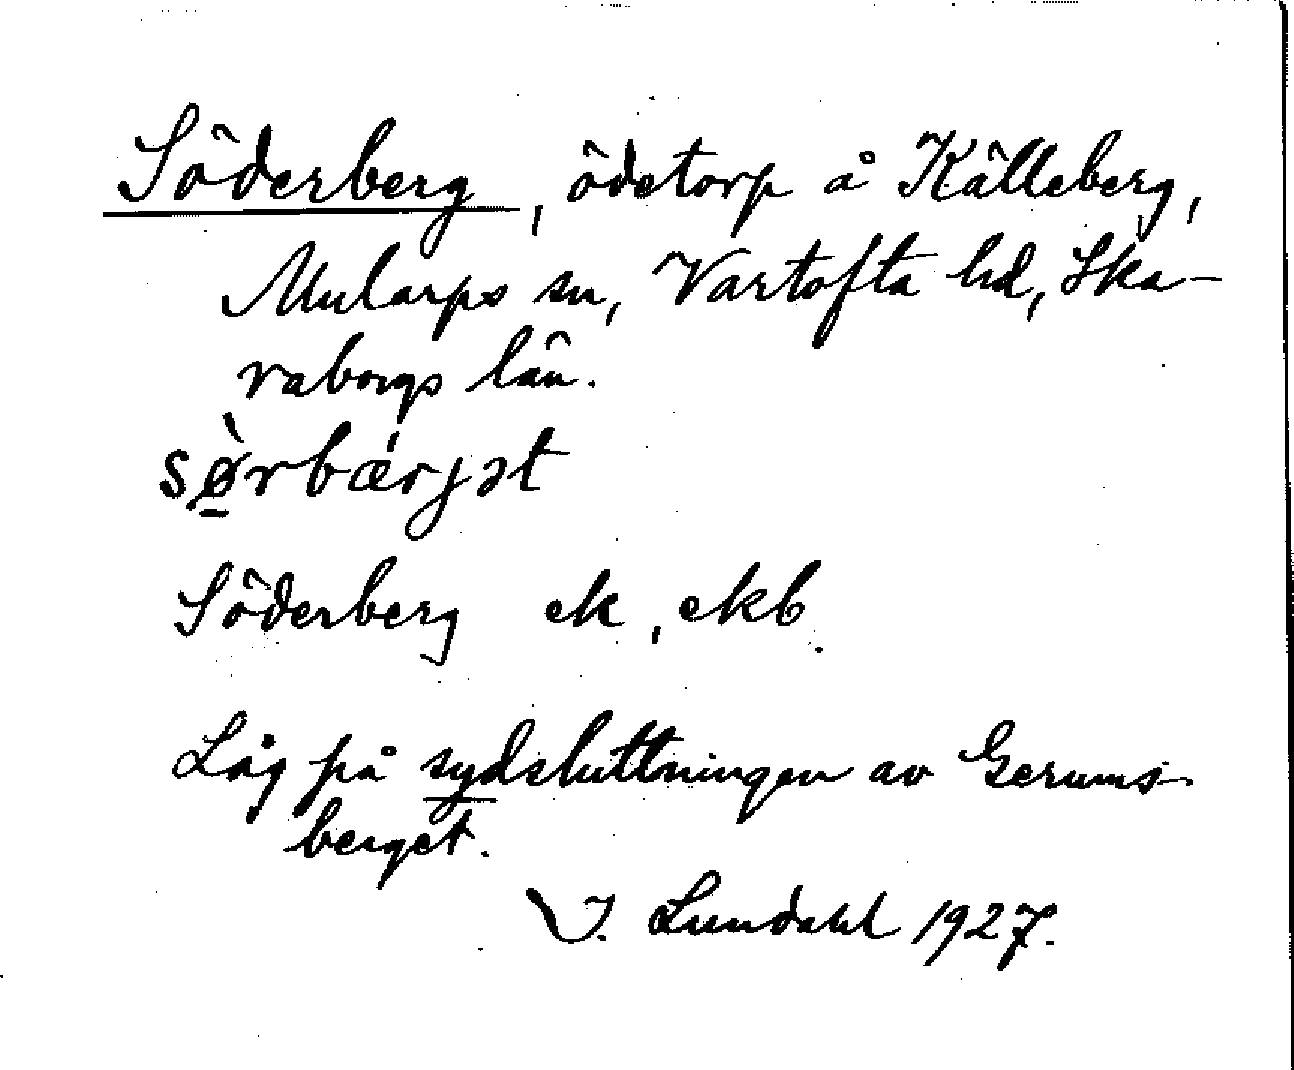 Söderberg, ödetorp å Källeberg,
Mularps sn, Vartofta hd, Ska-
raborgs län.
sø̀rbærjət
Söderberg ek, ekb.
Låg på sydsluttningen av Gerums-
berget.
I. Lundahl 1927.